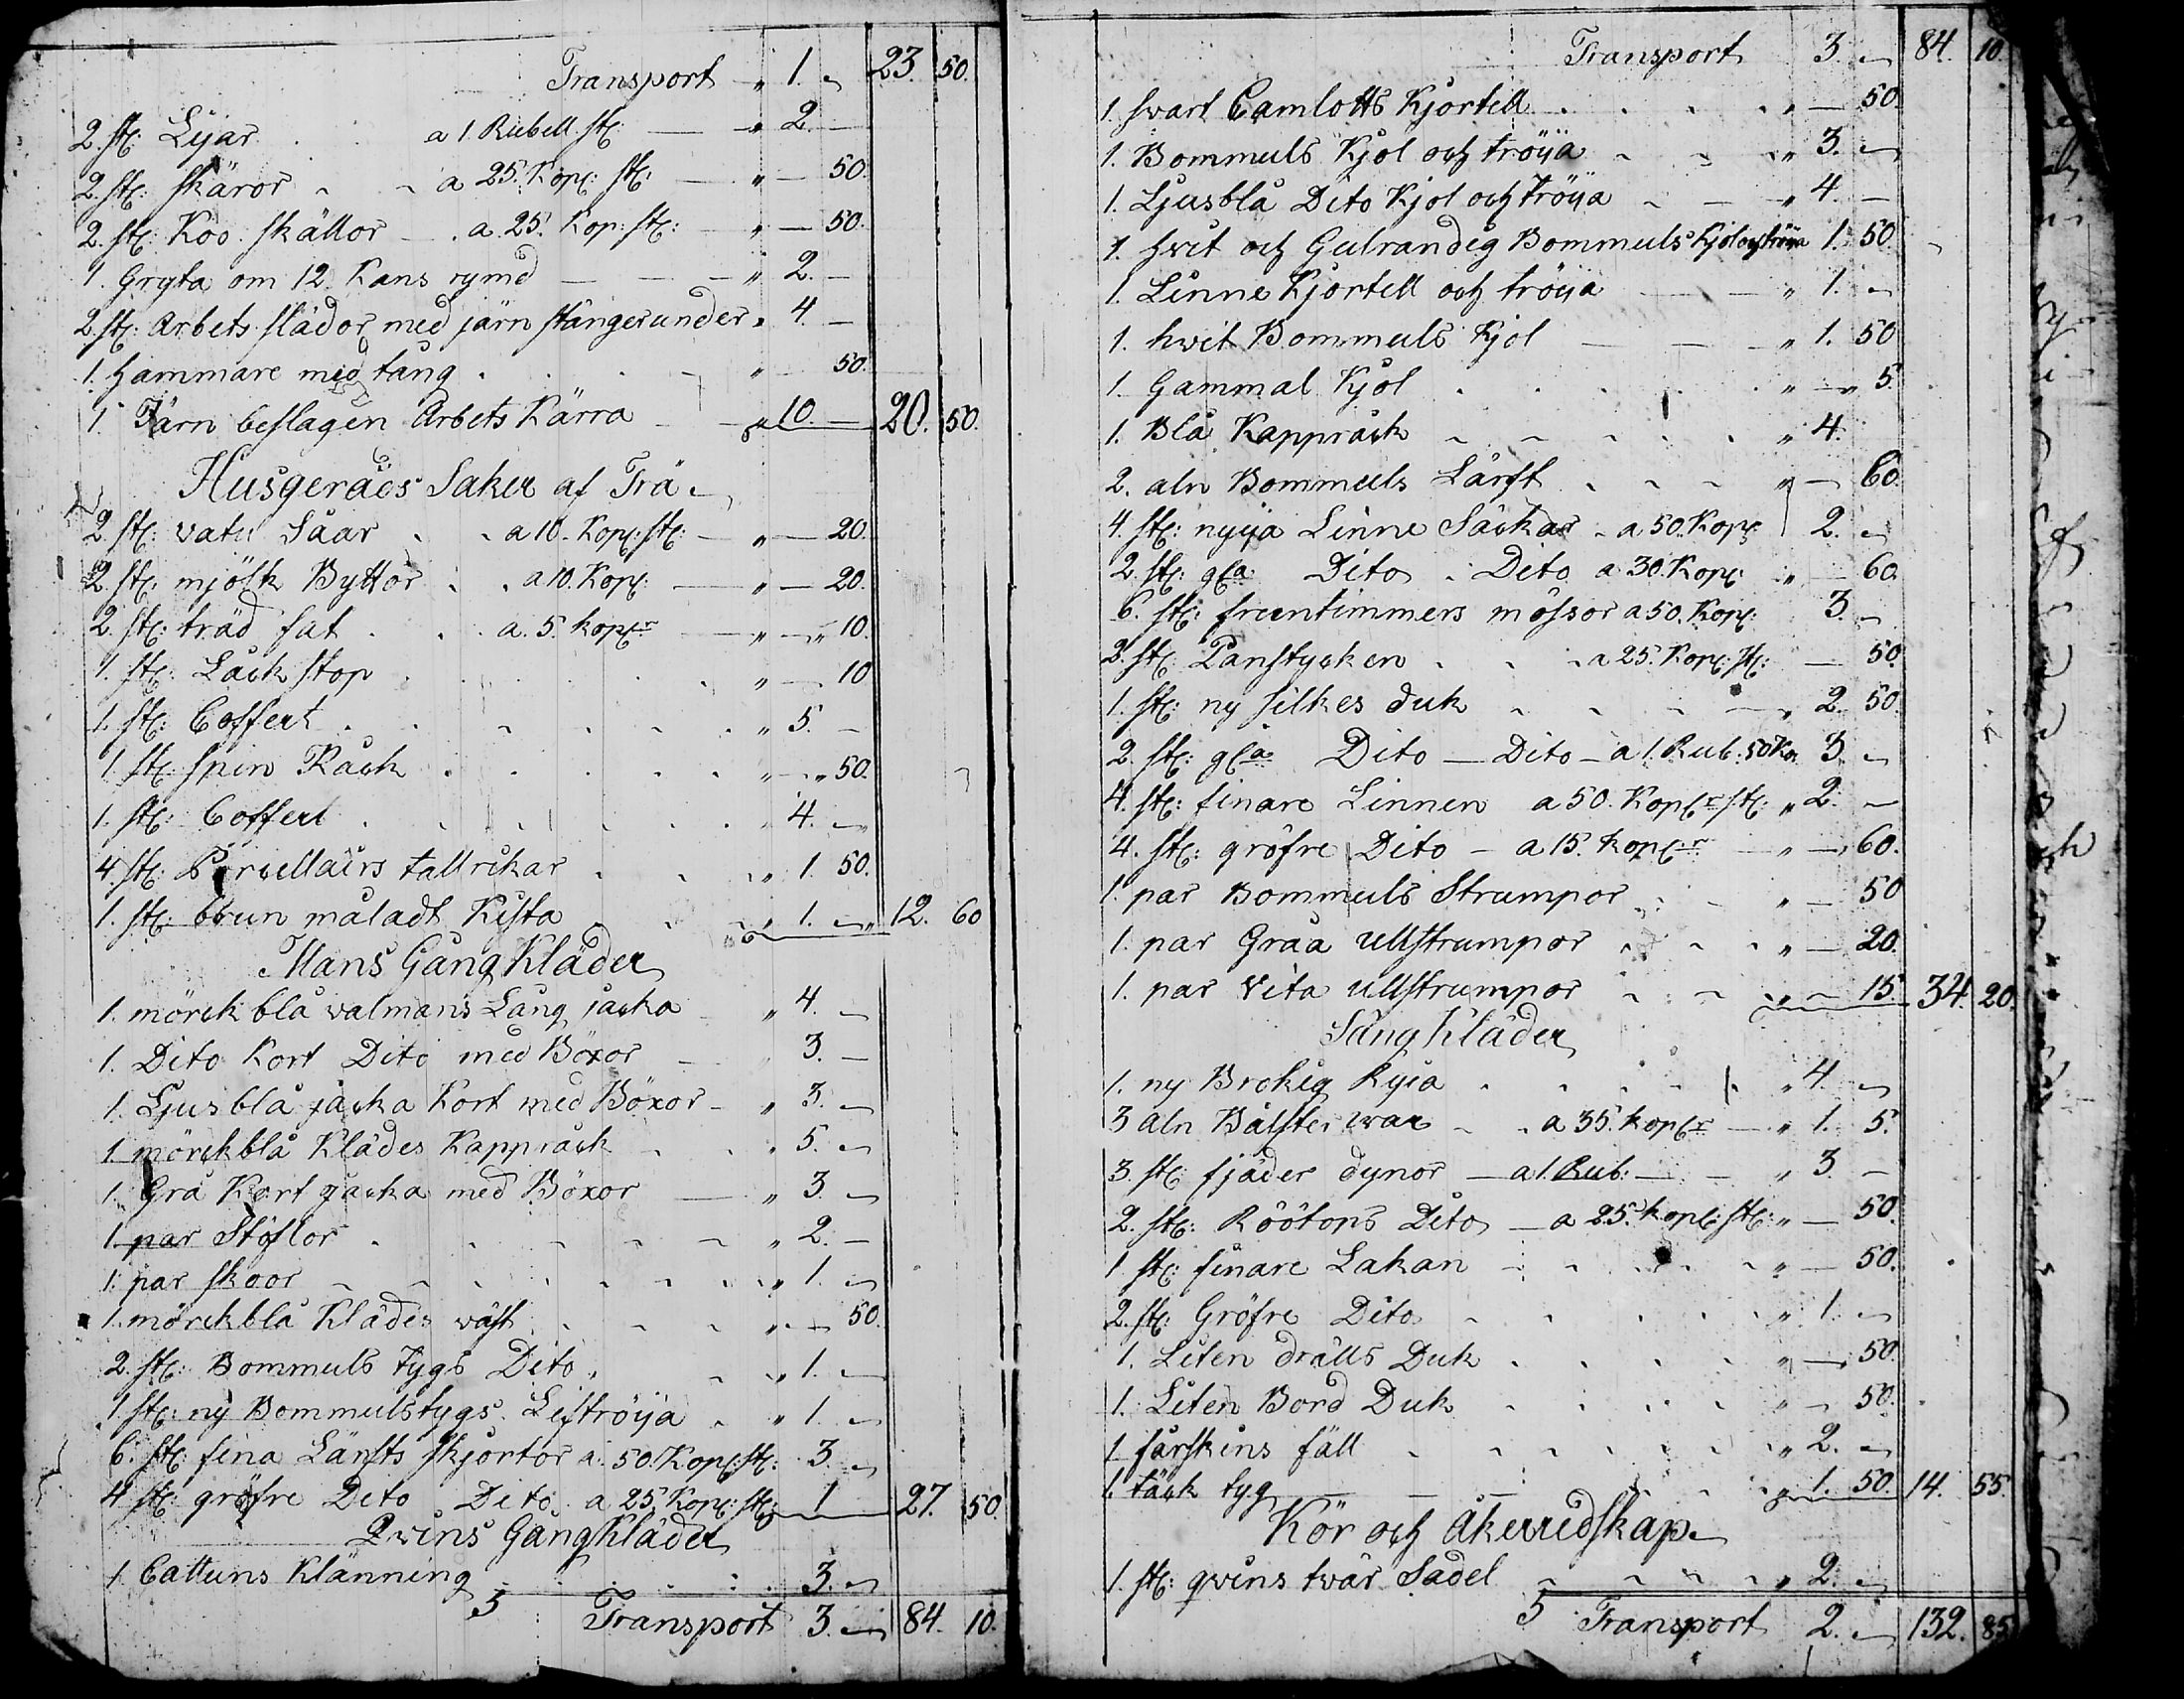 Transport " 1. 23. 50.
2. st: Lijar a 1. Rubell. st: " 2. —
2. st: skäror a 25. Kop: st: " — 50.
2. st: Koo. skällor a. 25. Kop: st: " — 50.
1. Gryta om 12. Kans rymd " 2. —
2. st: Arbets slädor med järn stänger under " 4. —
1. hammare med tång " 50.
1. Järn beslagen Arbets Kärra " 10. — 20. 50.
Husgeråds Saker af Trä
2. st: vatu Såar a 10. Kop: st: " — 20.
2 st: mjölk Byttor a 10. Kop: " — 20.
2. st: träd fat a. 5. kop: " — 10.
1. st: Låck stop " — 10
1. st: Coffert " 5. —
1 st: spin Råck " — 50.
1. st: Coffert 4. —
4. st: Porcellains tallrikar " 1. 50.
1. st: brun måladt Kista " 1. — 12. 60
Mans Gång Kläder
1. mörck blå valmans Lång jacka " 4. —
1. Dito Kort Dito med Böxor 3. —
1. Ljusblå jacka Kort med Böxor " 3. —
1. mörckblå Klädes Kappråck " 5. —
1. Grå Kort jacka med Böxor " 3. —
1. par Stöflor " 2. —
1. par skoor " 1. —
1. mörckblå Klädes väst " — 50.
2. st: Bommuls tygs Dito " 1. —
1 st: ny Bommulstygs Liftröija " 1. —
6. st: fina Lärfts skjortor a 50. Kop: st: 3. —
4 st: gröfre Dito Dito a 25. Kop: st: 1 27. 50.
Qvins Gång Kläder
1 Cattuns Klänning 3. —
5 Transport 3. — 84. 10.
Transport 3. — 84. 10.
1. svart Camlotts Kjortell " — 50
1. Bommuls Kjol och tröija " 3. —
1. Ljusblå Dito Kjol och tröija " 4. —
1. hvit och Gulrandig Bommuls Kjol och tröija 1. 50.
1. Linne Kjortell och tröija " 1. —
1. hvit Bommuls Kjol " 1. 50
1. Gammal Kjol " — 5.
1. Blå Kappråck " 4.
2. aln Bommuls Lärft " — 60.
4. st: nyija Linne Säckar a 50. Kop: 2. —
2. st: gla Dito Dito a 30. Kop: " 60.
6. st: fruntimmers mössor a 50. Kop: 3. —
2. st: Panstycken a 25. Kop: st: — 50.
1. st: ny silkes duk " 2. 50.
2. st: gla Dito — Dito — a 1. Rub: 50 Ko 3. —
4. st: finare Linnen a 50. Kop: st: " 2. —
4. st: gröfre Dito — a 15. kop: " — 60.
1. par Bommuls Strumpor " — 50
1. par Gråa ullstrumpor " — 20.
1. par Vita ullstrumpor " — 15. 34. 20.
Säng Kläder
1. ny Brokig Ryia " 4. —
3 aln Bålster war a 35. kop: " 1. 5.
3. st: fjäder dynor — a 1. Rub: " 3. —
2. st: Röötops Dito — a 25. kop: st: " — 50.
1 st: finare Lakan " — 50.
2. st: Gröfre Dito " 1. —
1. Liten drälls Duk " — 50.
1. Liten Bord Duk " — 50.
1 fårskins fäll " 2. —
1. täck tyg " 1. 50. 14. 55.
Kör och åkerredskap
1. st: qvins tvär Sadel " 2. —
5 Transport 2. — 132. 85